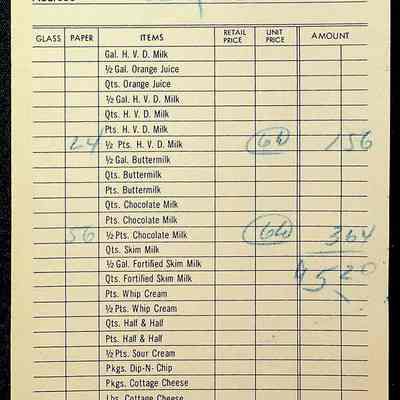 GLASS PAPER ITEMS RETAIL PRICE UNIT PRICE AMOUNT
Gal. H. V. D. Milk
½ Gal. Orange Juice
Qts. Orange Juice
½ Gal. H. V. D. Milk
Qts. H. V. D. Milk
Pts. H. V. D. Milk
24 ½ Pts. H. V. D. Milk 6½ 156
½ Gal. Buttermilk
Qts. Buttermilk
Pts. Buttermilk
Qts. Chocolate Milk
Pts. Chocolate Milk
56 ½ Pts. Chocolate Milk 6½ 364
Qts. Skim Milk
½ Gal. Fortified Skim Milk $5 20
Qts. Fortified Skim Milk
Pts. Whip Cream
½ Pts. Whip Cream
Qts. Half & Half
Pts. Half & Half
½ Pts. Sour Cream
Pkgs. Dip-N- Chip
Pkgs. Cottage Cheese
Lbs. Cottage Cheese